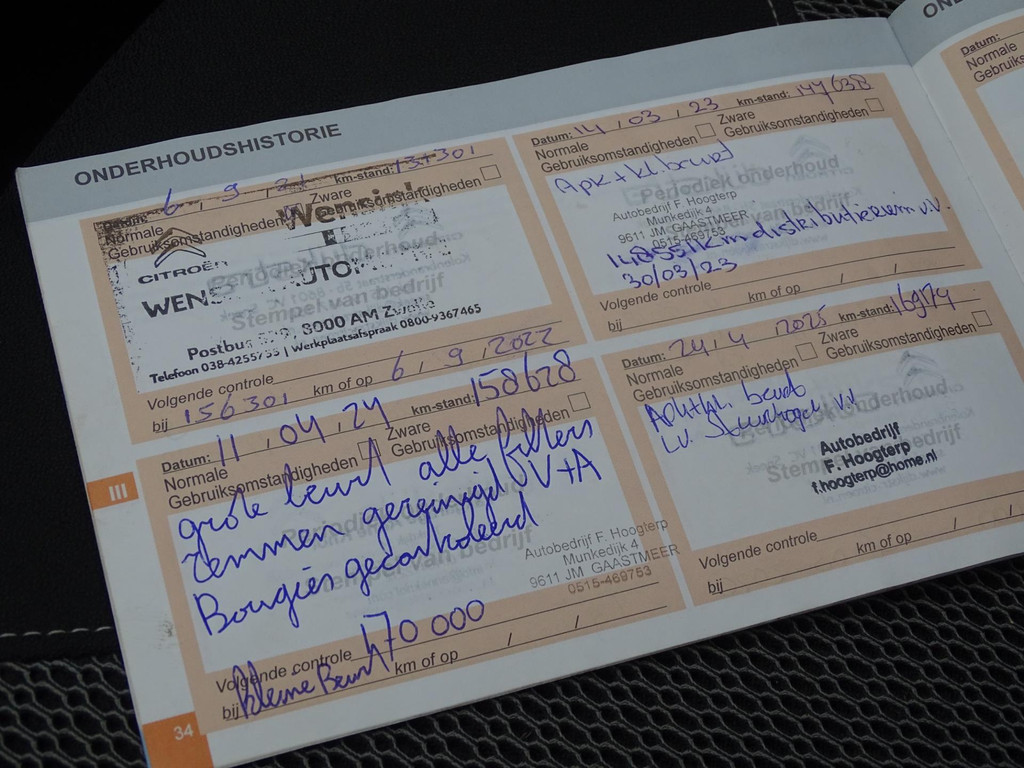 ONDERHOUDSHISTORIE
Datum: 6 , 9 , 21 km-stand: 137301
Normale Zware
Gebruiksomstandigheden Gebruiksomstandigheden
Wensink
CITROËN
WENS AUTO
Postbus 8000 AM Zwolle
Telefoon 038-4255755 | Werkplaatsafspraak 0800-9367465
Volgende controle
bij 156301 km of op 6 , 9 , 2022
Datum: 14 , 03 , 23 km-stand: 147638
Normale Zware
Gebruiksomstandigheden Gebruiksomstandigheden
Apk + kl. beurt
Periodiek onderhoud
Autobedrijf F. Hoogterp
Munkedijk 4
9611 JM GAASTMEER
0515-469753
km distributieriem v.v.
30/03/23
Volgende controle
bij km of op / /
Datum: 11 , 04 , 24 km-stand: 158628
Normale Zware
Gebruiksomstandigheden Gebruiksomstandigheden
grote beurt alle filters
remmen gereinigd V+A
Bougies gecontroleerd
Autobedrijf F. Hoogterp
Munkedijk 4
9611 JM GAASTMEER
0515-469753
Volgende controle 170 000
bij kleine Beurt km of op / /
Datum: 24 , 4 2025 km-stand:
Normale Zware
Gebruiksomstandigheden Gebruiksomstandigheden
kl. beurt
l.v. v.v
Autobedrijf
F. Hoogterp
f.hoogterp@home.nl
Volgende controle
bij km of op / /
III
34
ON
Datum:
Normale
Gebruiks